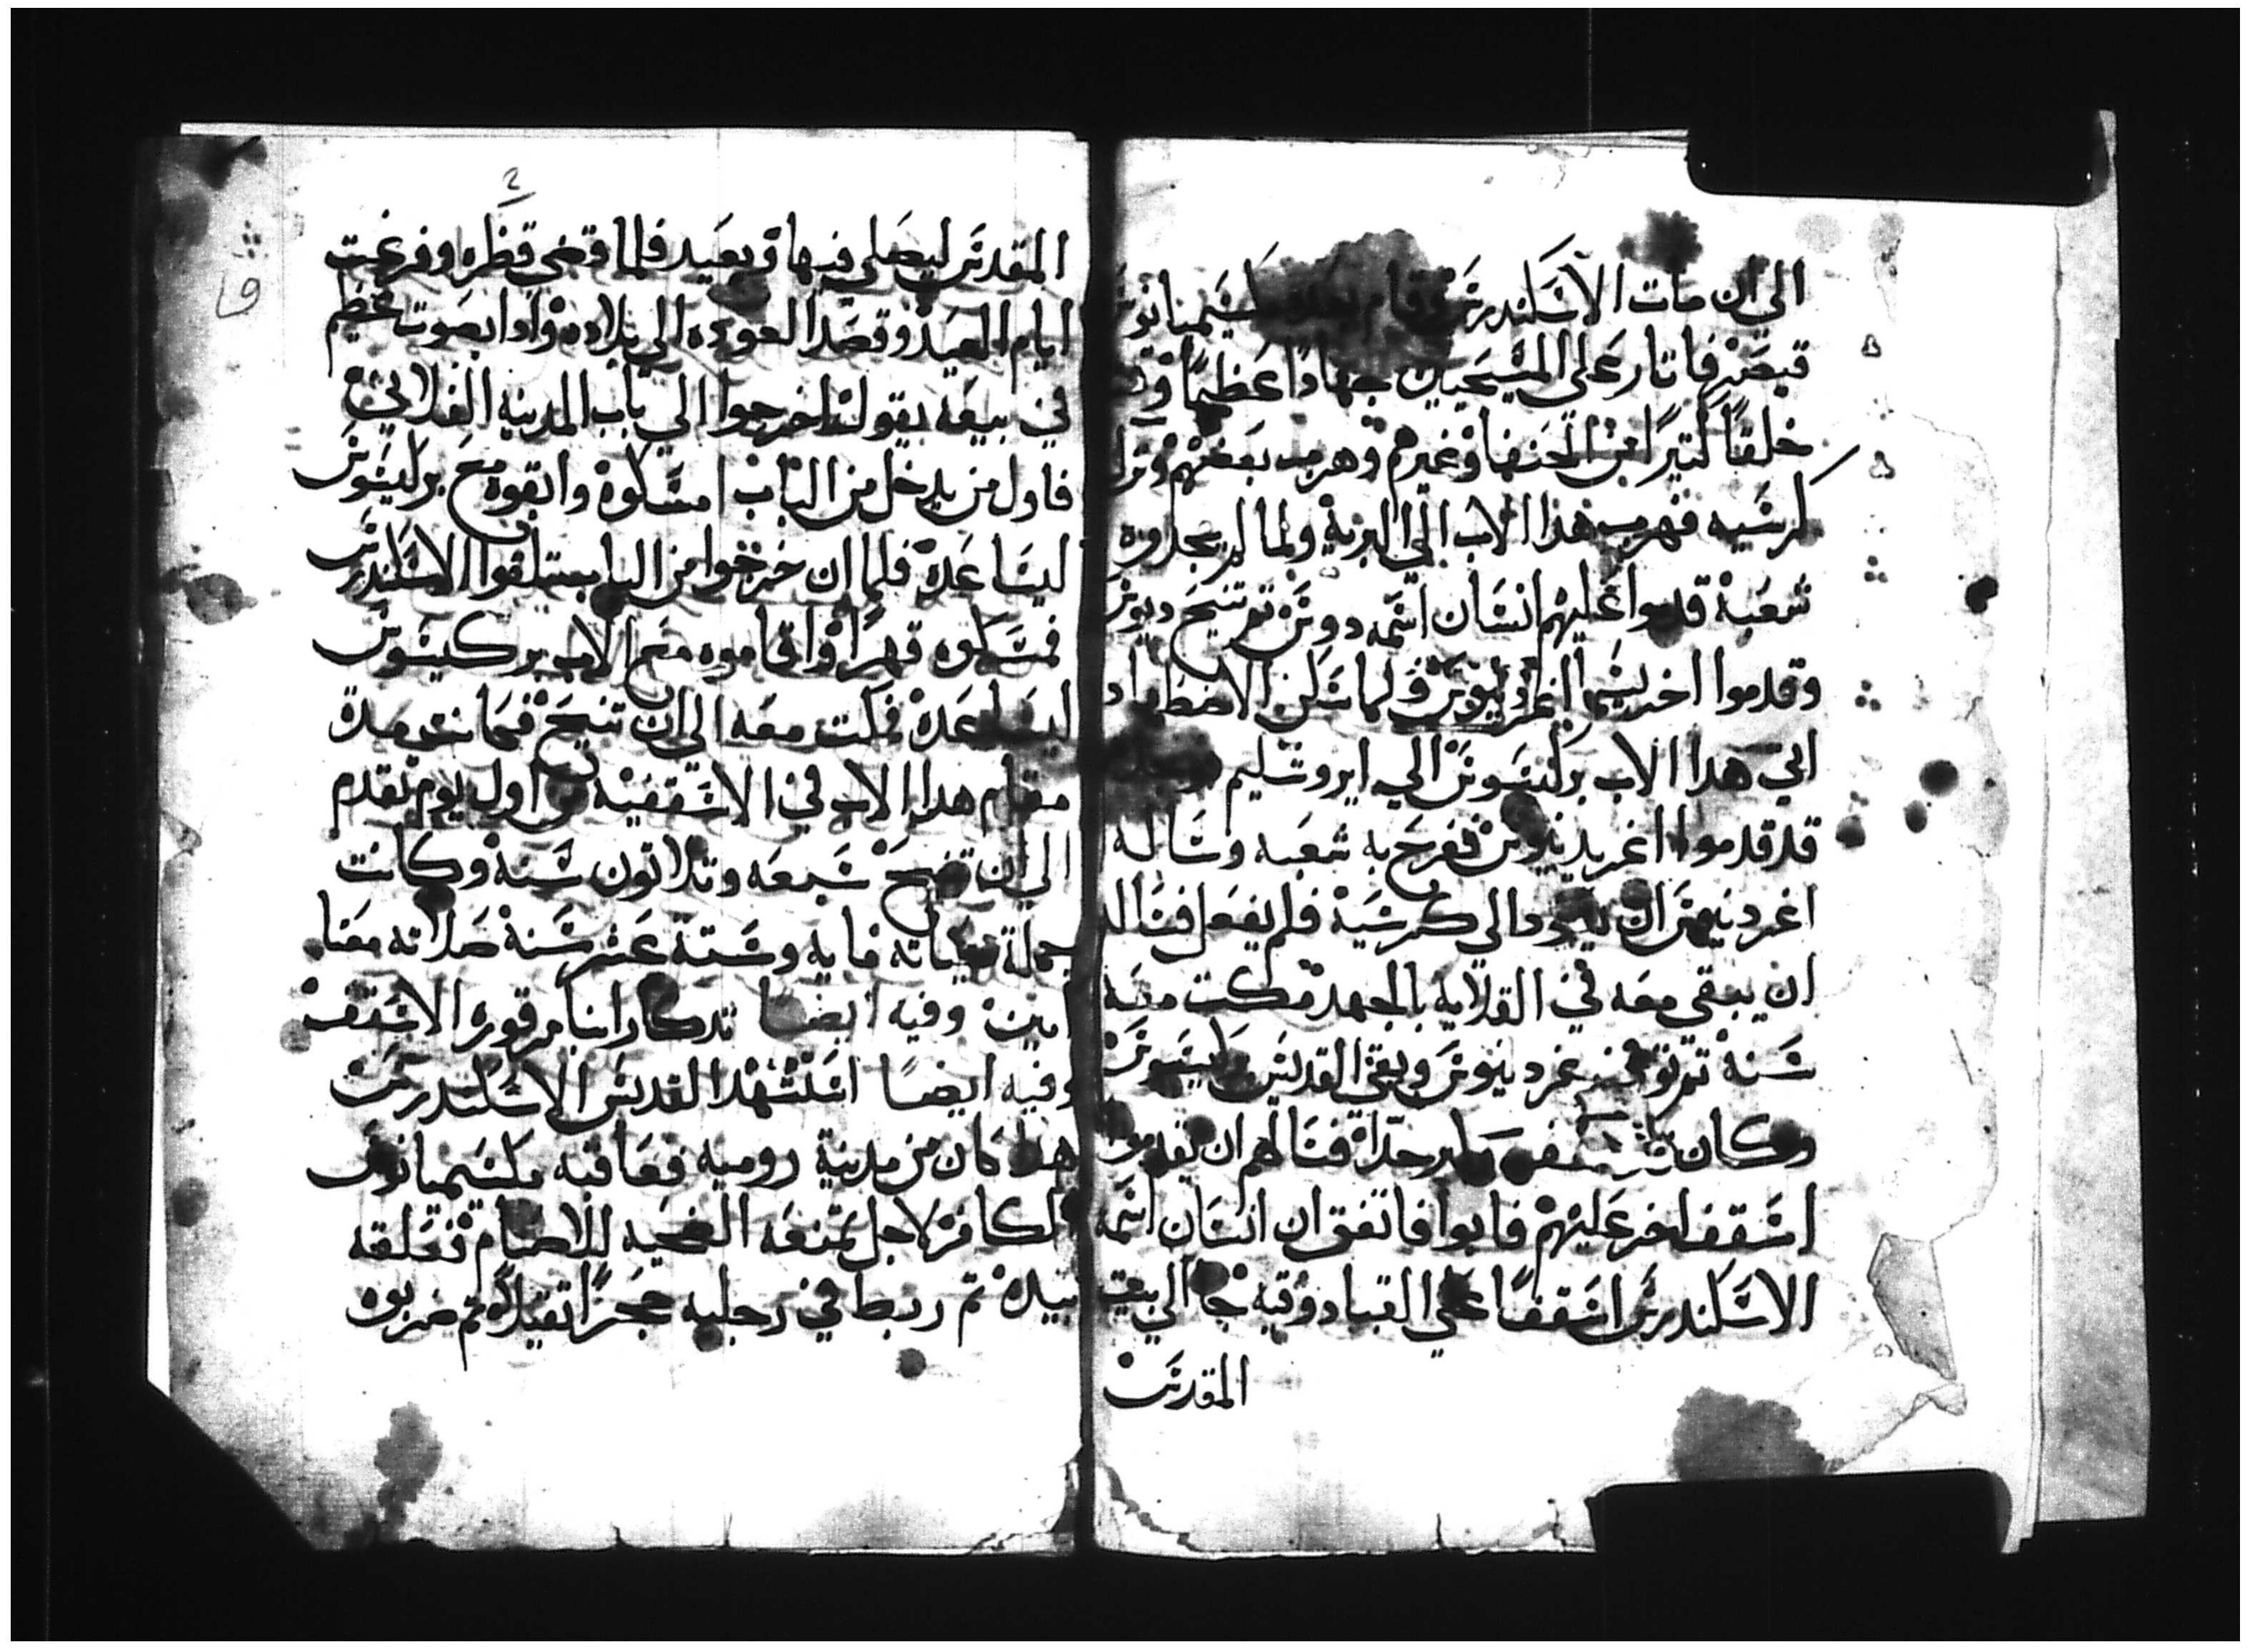 الى ان مات الاسكندرس وقام بعده مكسيميانوس
قيصر فاتار على المسيحيين جهادا عظيما وقتل
خلقا كتيرا من الحنفا وغيرهم وهرب بعضهم وترك
كرسيه فهرب هذا الاب الى البريه ولما لم يجدوه
شعبه قدموا عليهم انسان اسمه دوس تم تنيح ديوس
وقدموا اخر يسما اغرديانوس ولما سكن الاضطهاد
اتي هدا الاب بركيسوس الي ايروشليم
قد قدموا اغريدينوس ففرح به شعبه وساله
اغردنيوس ان يعود الي كرسيه فلم يفعل فساله
ان يبقي معه في القلايه بالجهد مكت معه
سنه تم توفي غردينوس وبقي القديس بركيسوس
وكان قد كبر جدا فسالهم ان يقدموا
اسقف اخر عليهم فابوا فاتفق ان انسان اسمه
الاسكندرس اسقفا علي القبادوقيه جا الي بيت
المقدس
2
المقدس ليصلي فيها ويعيد فلما قضي فطره وفرغت
ايام العيد وقصد العوده الي بلاده واذا بصوت عظيم
في بيعه يقول اخرجوا الي باب المدينه الفلاني
فاول من يدخل من الباب امسكوه وابقوه مع بركيسوس
ليساعده فلما ان خرجوا من الباب استلقوا الاسكندرس
فمسكوه قهرا واقاموه مع الاب بركيسوس
ليساعده فمكت معه الي ان تنيح فكانت مدة
مقام هدا الاب في الاسقفيه من اول يوم تقدم
الي ان تنيح سبعه وتلاتون سنة وكانت
جملة حياته مايه وستة عشر سنة صلاته معنا
امين وفيه ايضا تدكار انبا مرقوره الاسقف
وفيه ايضا استشهد القديس الاسكندرس
هدا كان من مدينة روميه فعاقبه مكسيميانوس
الكافر لاجل تمنعه الضحيه للاصنام فعلقه
بيده تم ربط في رجليه حجرا تقيلا تم ضربوه